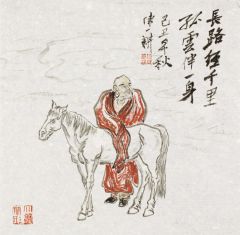 長路經千里
孤雲伴一身
己丑年秋